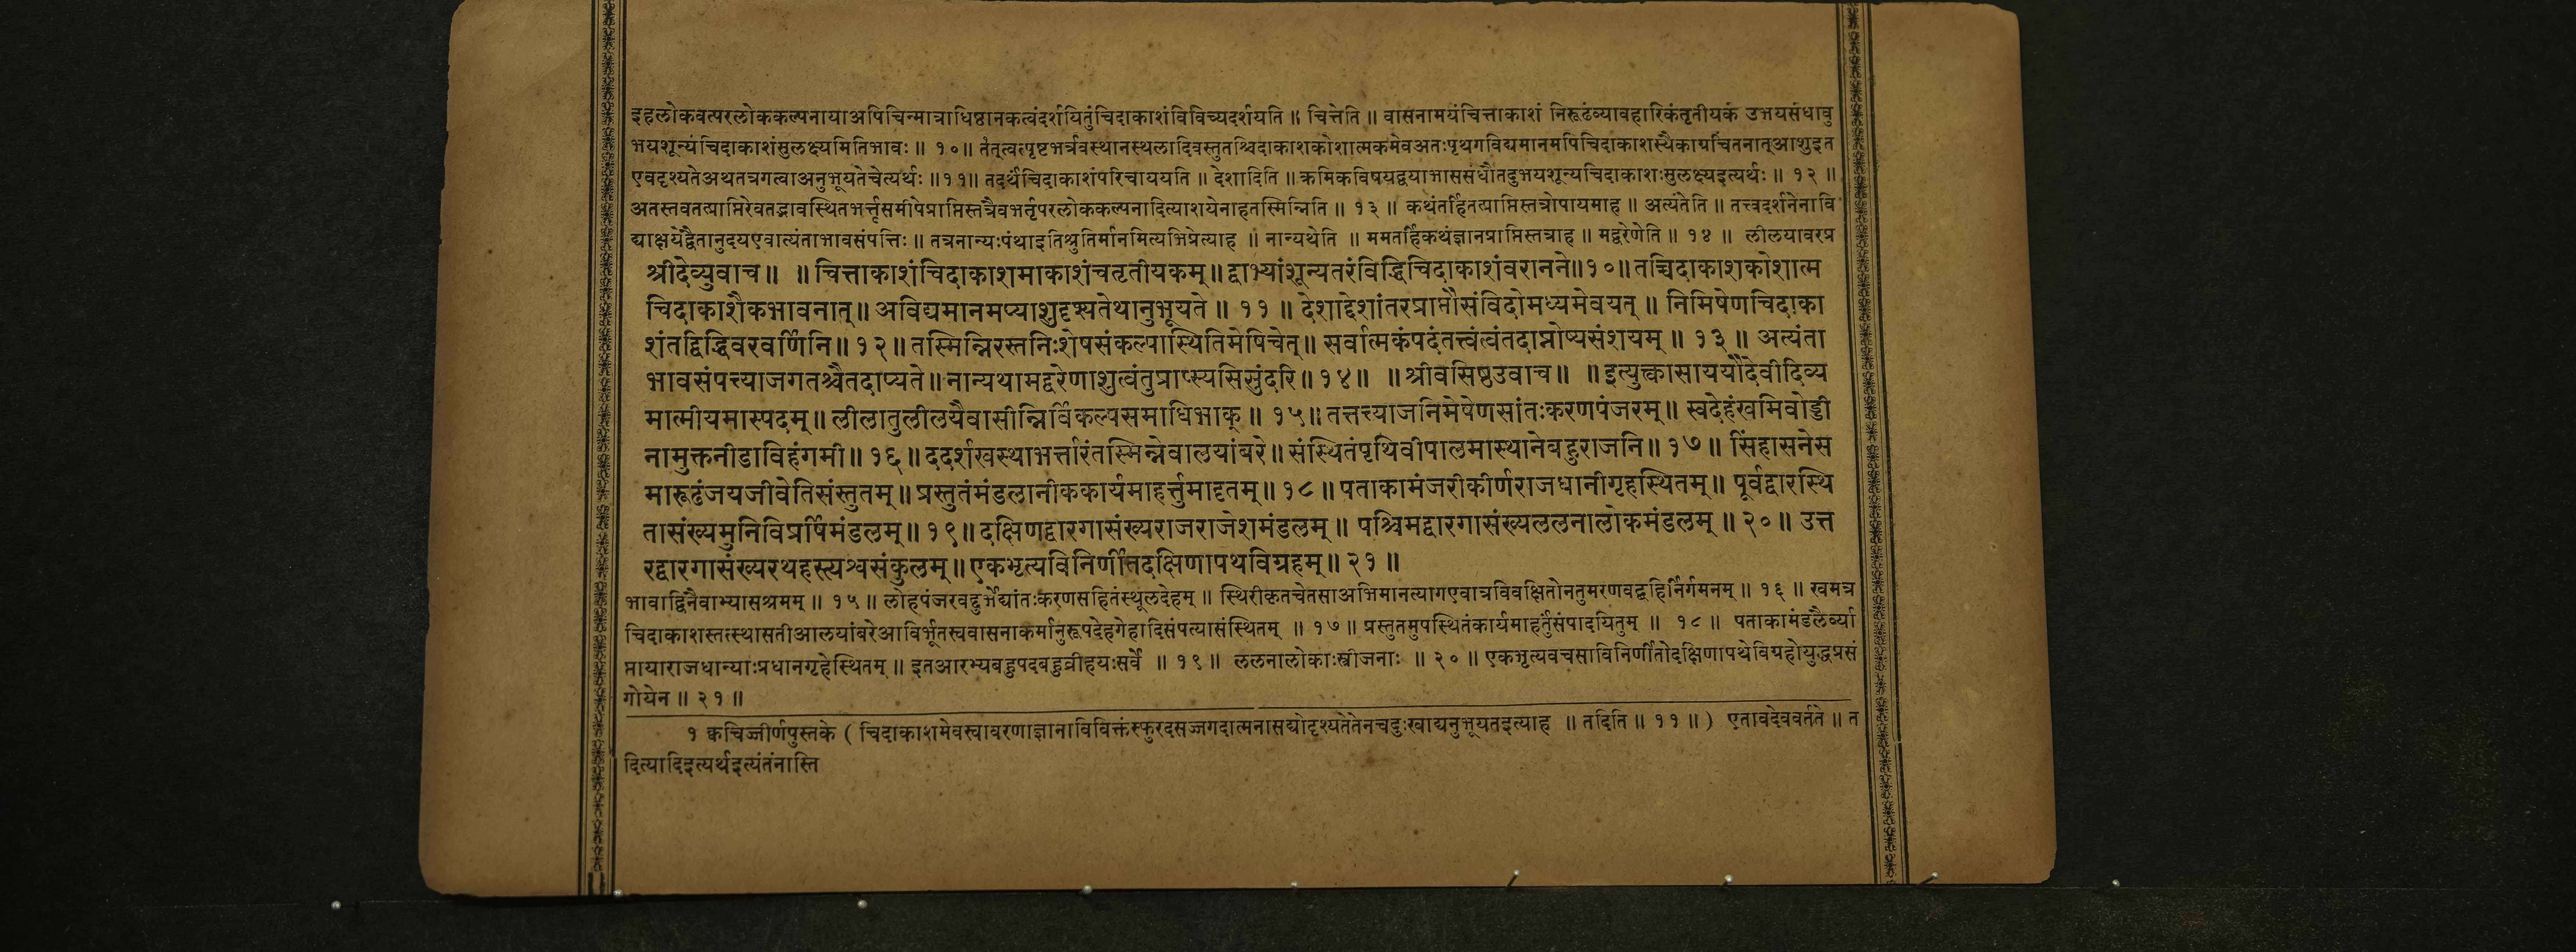 इहलोकवत्परलोककल्पनायाअपिचिन्मात्राधिष्ठानकत्वंदर्शयितुंचिदाकाशंविविच्यदर्शयति ॥ चित्तेति ॥ वासनामयंचित्ताकाशं निरूढंव्यावहारिकंतृतीयकं उभयसंधावु
भयशून्यंचिदाकाशंसुलक्ष्यमितिभावः ॥ १० ॥ तत्त्वत्पृष्टभर्त्रवस्थानस्थलादिवस्तुतश्चिदाकाशकोशात्मकमेवअतःपृथगविद्यमानमपिचिदाकाशस्यैकाग्र्यचिंतनात्आशुइत
एवदृश्यतेअथतत्रगत्वाअनुभूयतेचेत्यर्थः ॥ ११ ॥ तदर्थंचिदाकाशंपरिचाययति ॥ देशादिति ॥ क्रमिकविषयद्वयाभाससंधौतदुभयशून्यचिदाकाशःसुलक्ष्यइत्यर्थः ॥ १२ ॥
अतस्तवतत्प्राप्तिरेवतद्भावस्थितभर्त्तृसमीपेप्राप्तिस्तत्रैवभर्तृपरलोककल्पनादित्याशयेनाहतस्मिन्निति ॥ १३ ॥ कथंतर्हितत्प्राप्तिस्तत्रोपायमाह ॥ अत्यंतेति ॥ तत्त्वदर्शनेनावि
द्याक्षयेद्वैतानुदयएवात्यंताभावसंपत्तिः ॥ तत्रनान्यःपंथाइतिश्रुतिर्मानमित्यभिप्रेत्याह ॥ नान्यथेति ॥ ममतर्हिकथंज्ञानप्राप्तिस्तत्राह ॥ मद्वरेणेति ॥ १४ ॥ लीलयावरप्र
श्रीदेव्युवाच ॥ ॥ चित्ताकाशंचिदाकाशमाकाशंचतृतीयकम् ॥ द्वाभ्यांशून्यतरंविद्धिचिदाकाशंवरानने ॥ १० ॥ तच्चिदाकाशकोशात्म
चिदाकाशैकभावनात् ॥ अविद्यमानमप्याशुदृश्यतेथानुभूयते ॥ ११ ॥ देशाद्देशांतरप्राप्तौसंविदोमध्यमेवयत् ॥ निमिषेणचिदाका
शंतद्विद्धिवरवर्णिनि ॥ १२ ॥ तस्मिन्निरस्तनिःशेषसंकल्पास्थितिमेषिचेत् ॥ सर्वात्मकंपदंतत्त्वंत्वंतदाप्नोष्यसंशयम् ॥ १३ ॥ अत्यंता
भावसंपत्त्याजगतश्चैतदाप्यते ॥ नान्यथामद्वरेणाशुत्वंतुप्राप्स्यसिसुंदरि ॥ १४ ॥ ॥ श्रीवसिष्ठउवाच ॥ ॥ इत्युक्त्वासाययौदेवीदिव्य
मात्मीयमास्पदम् ॥ लीलातुलीलयैवासीन्निर्विकल्पसमाधिभाक् ॥ १५ ॥ तत्तत्याजनिमेषेणसांतःकरणपंजरम् ॥ स्वदेहंखमिवोड्डी
नामुक्तनीडाविहंगमी ॥ १६ ॥ ददर्शखस्थाभर्त्तारंतस्मिन्नेवालयांबरे ॥ संस्थितंपृथिवीपालमास्थानेबहुराजनि ॥ १७ ॥ सिंहासनेस
मारूढंजयजीवेतिसंस्तुतम् ॥ प्रस्तुतंमंडलानीककार्यमाहर्त्तुमादृतम् ॥ १८ ॥ पताकामंजरीकीर्णराजधानीगृहस्थितम् ॥ पूर्वद्वारस्थि
तासंख्यमुनिविप्रर्षिमंडलम् ॥ १९ ॥ दक्षिणद्वारगासंख्यराजराजेशमंडलम् ॥ पश्चिमद्वारगासंख्यललनालोकमंडलम् ॥ २० ॥ उत्त
रद्वारगासंख्यरथहस्त्यश्वसंकुलम् ॥ एकभृत्यविनिर्णीतदक्षिणापथविग्रहम् ॥ २१ ॥
भावाद्विनैवाभ्यासश्रमम् ॥ १५ ॥ लोहपंजरवद्दुर्भेद्यांतःकरणसहितंस्थूलदेहम् ॥ स्थिरीकृतचेतसाअभिमानत्यागएवात्रविवक्षितोनतुमरणवद्बहिर्निर्गमनम् ॥ १६ ॥ खमत्र
चिदाकाशस्तत्स्थासतीआलयांबरेआविर्भूतस्ववासनाकर्मानुरूपदेहगेहादिसंपत्यासंस्थितम् ॥ १७ ॥ प्रस्तुतमुपस्थितंकार्यमाहर्तुंसंपादयितुम् ॥ १८ ॥ पताकामंडलैर्व्या
प्तायाराजधान्याःप्रधानगृहेस्थितम् ॥ इतआरभ्यबहुपदबहुव्रीहयःसर्वे ॥ १९ ॥ ललनालोकाःस्त्रीजनाः ॥ २० ॥ एकभृत्यवचसाविनिर्णीतोदक्षिणापथेविग्रहोयुद्धप्रसं
गोयेन ॥ २१ ॥
१ क्वचिज्जीर्णपुस्तके ( चिदाकाशमेवस्वावरणाज्ञानाविविक्तंस्फुरदसज्जगदात्मनासद्योदृश्यतेतेनचदुःखाद्यनुभूयतइत्याह ॥ तदिति ॥ ११ ॥ ) एतावदेववर्तते ॥ त
दित्यादिइत्यर्थइत्यंतंनास्ति